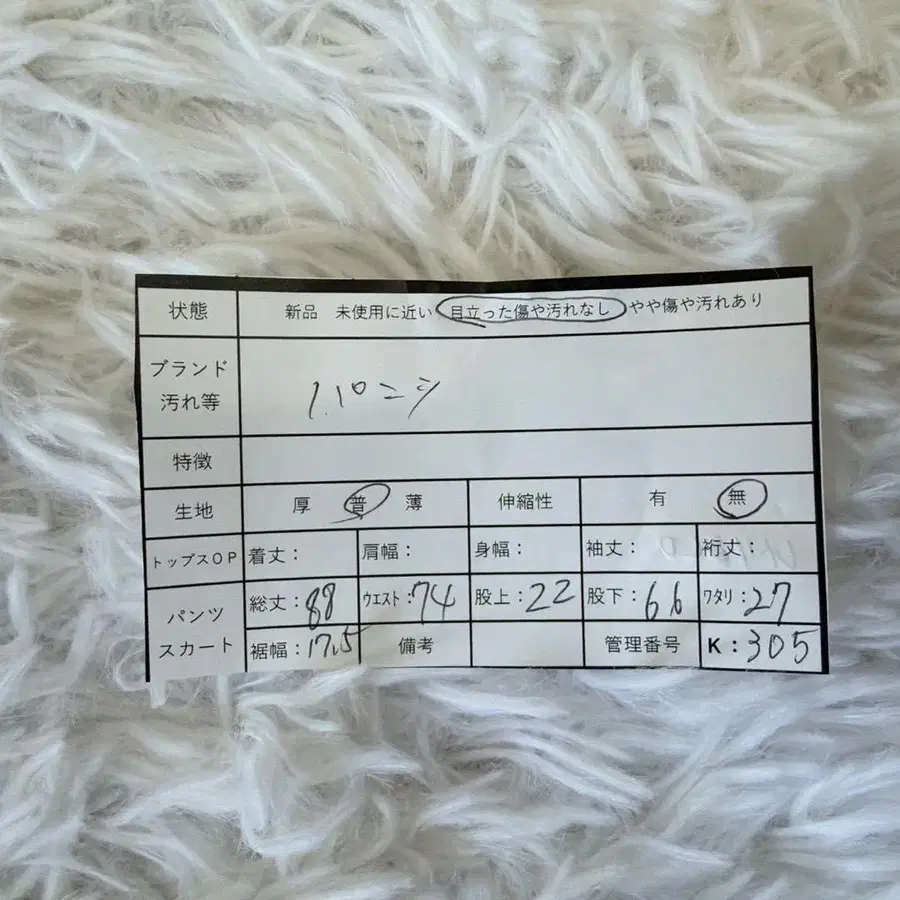 状態 新品 未使用に近い 目立った傷や汚れなし やや傷や汚れあり
ブランド
汚れ等
特徴
生地 厚 普 薄 伸縮性 有 無
トップスOP 着丈: 肩幅: 身幅: 袖丈: 裄丈:
パンツ
スカート
総丈:88 ウエスト:74 股上:22 股下:66 ワタリ:27
裾幅:17.5 備考 管理番号 K:305